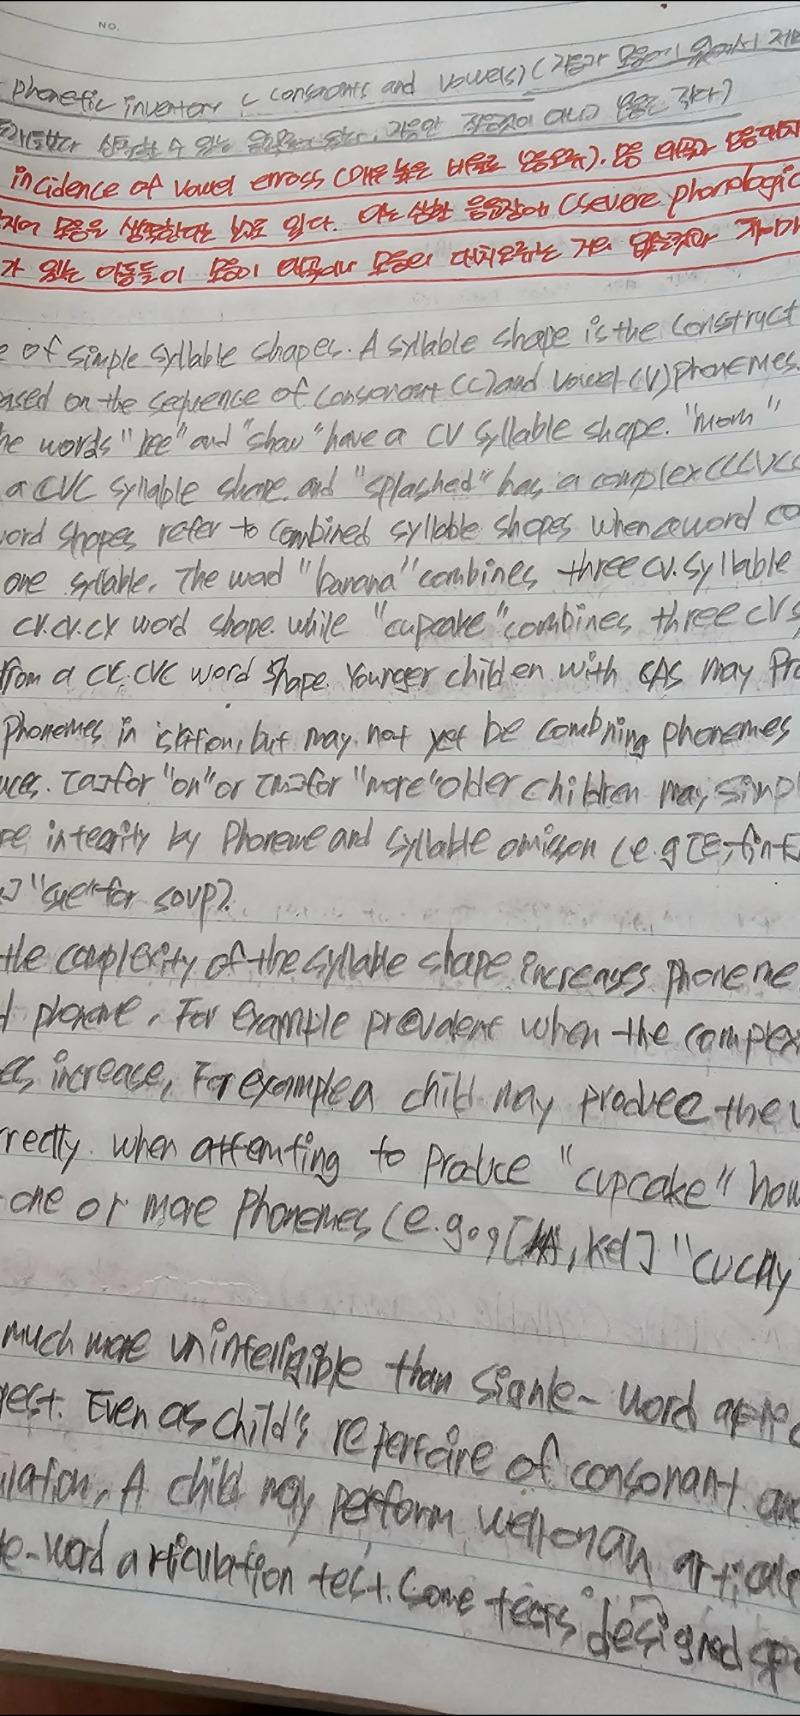 NO.
phonetic inventory (consonants and vowels) (자음과 모음에 있어서 제
incidence of vowel erross (매우 높은 비율로 모음오류). 모음 왜곡과 모음대치
모음을 생략한다는 보고도 있다. 이는 심한 음운장애 (severe phonologic
가 있는 아동들이 모음이 왜곡이나 모음의 대치오류는 거의 없는것과 차이가
e of simple syllable shapes. A syllable shape is the construct
ased on the sequence of consonant (C) and vowel (V) phonemes.
he words "bee" and "show" have a CV syllable shape. "mom"
a CVC syllable shape. and "splashed" has a complex CCCVCC
word shapes refer to combined syllable shapes when a word co
one syllable. The word "banana" combines three cv. syllable
CV.CV.CV word shape. while "cupcake" combines three CVs
from a CVC.CVC word shape. Younger children with CAS may pro
phonemes in but may not yet be combning phonemes
for "on" or for "more" older children may simpl
pe integrity by phoneme and syllable omisson (e.g
for soup).
the complexity of the syllable shape increases phoneme
phoneme. For example prevalent when the complex
es increase, For example a child may produce the
rrectly. when attemting to produce "cupcake" how
one or more phonemes (e.g.,
much more unintelligible than word
Even as child's repertoire of consonant an
A child may perform well on an article
le-word articulation test. Some tests designed sp